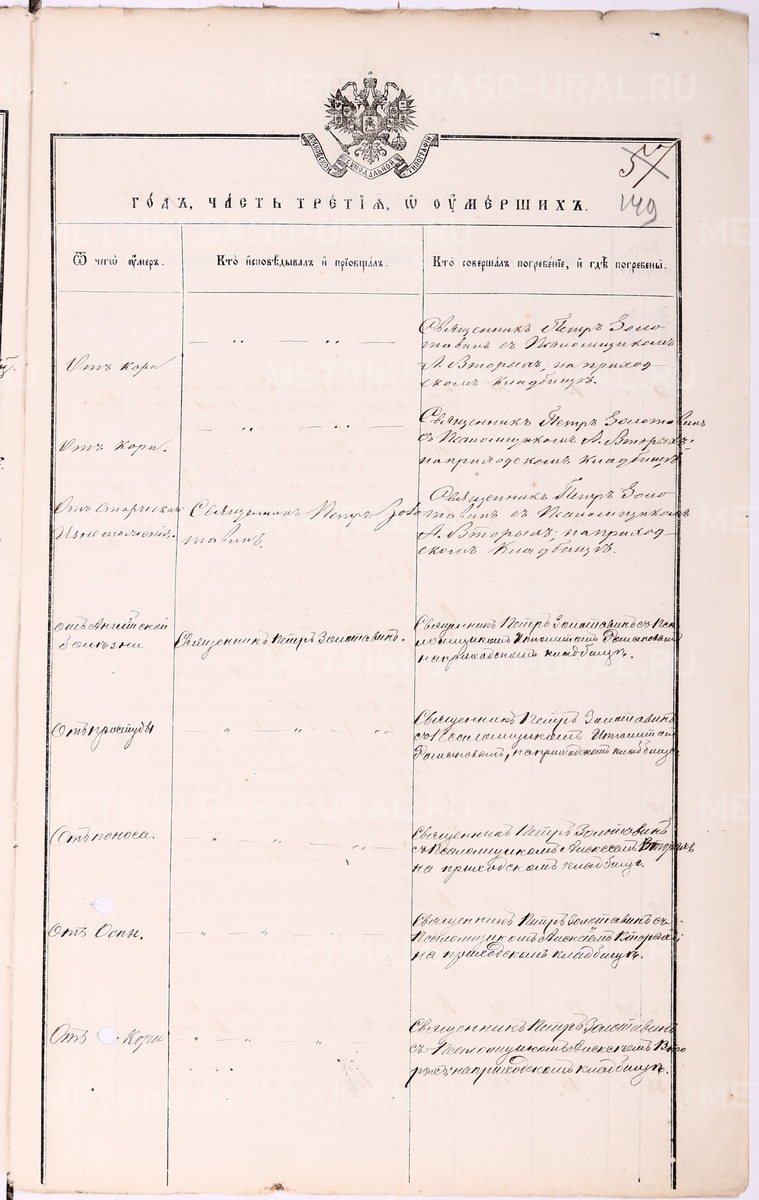 МОСКОВСКОЙ СѴНОДАЛЬНОЙ ТИПОГРАФІИ
57
149
ГО́ДЪ, ЧА́СТЬ ТРЕ́ТІѦ, Ѡ ОУ҆МЕ́РШИХЪ.
Ѿ чегѡ̀ оу҆́меръ.
Кто̀ и҆сповѣ́дывалъ и҆ прїѡбща́лъ.
Кто̀ соверша́лъ погребе́нїе, и҆ гдѣ̀ погребены̀.
Отъ кори
Священникъ Петръ Золо
тавинъ съ Псаломщикомъ
А. Вторыхъ; на приход-
скомъ кладбищѣ.
Отъ кори.
Священникъ Петръ Золотавинъ
съ Псаломщикомъ А. Вторыхъ;
на приходскомъ кладбищѣ
Отъ старческаго
изнеможенія.
Священникъ Петръ Золо
тавинъ.
Священникъ Петръ Золо
тавинъ съ Псаломщикомъ
А. Вторыхъ; на приход-
скомъ кладбищѣ.
отъ Англійской
болѣзни
Священникъ Петръ Золотавинъ.
Священникъ Петръ Золотавинъ съ Пса
ломщикомъ
на приходскомъ кладбищѣ.
Отъ простуды
Священникъ Петръ Золотавинъ
съ Псаломщикомъ
на приходскомъ кладбищѣ
Отъ поноса.
Священникъ Петръ Золотавинъ
съ Псаломщикомъ Алексѣемъ Вторыхъ
на приходскомъ кладбищѣ.
Отъ Оспы.
Священникъ Петръ Золотавинъ съ
Псаломщикомъ Алексѣемъ Вторыхъ
на приходскомъ кладбищѣ.
Отъ Кори
Священникъ Петръ Золотавинъ
съ Псаломщикомъ Алексѣемъ Вто
рыхъ; на приходскомъ кладбищѣ.
METRIKI.GASO-URAL.RU